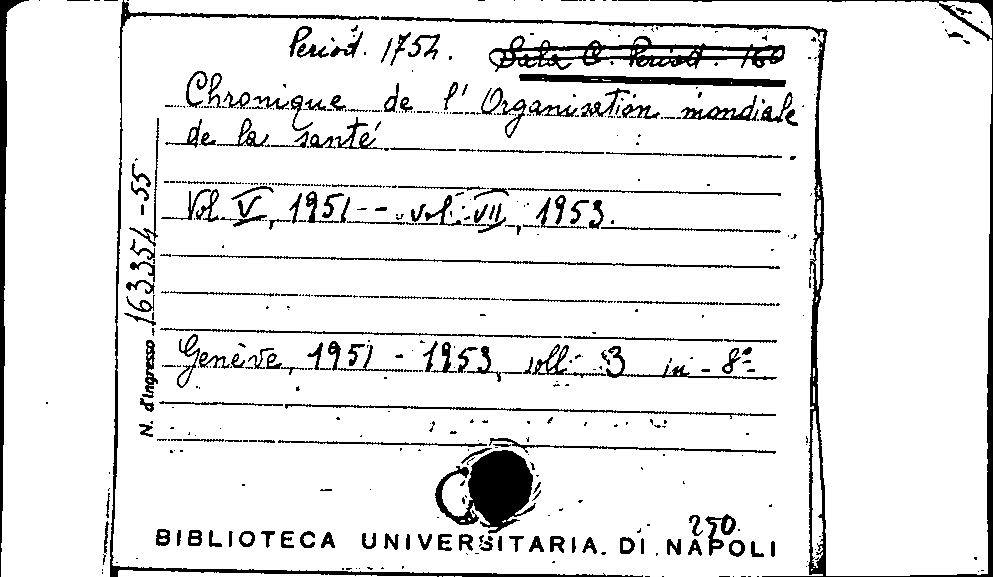 Period. 1754. Sala C. Period. 160
Chronique de l'Organisation mondiale
de la santé
Vol. V, 1951 -- vol. VII, 1953.
Genève, 1951 - 1953, voll. 3 in - 8º
N. d'Ingresso 163354-55
250
BIBLIOTECA UNIVERSITARIA DI NAPOLI